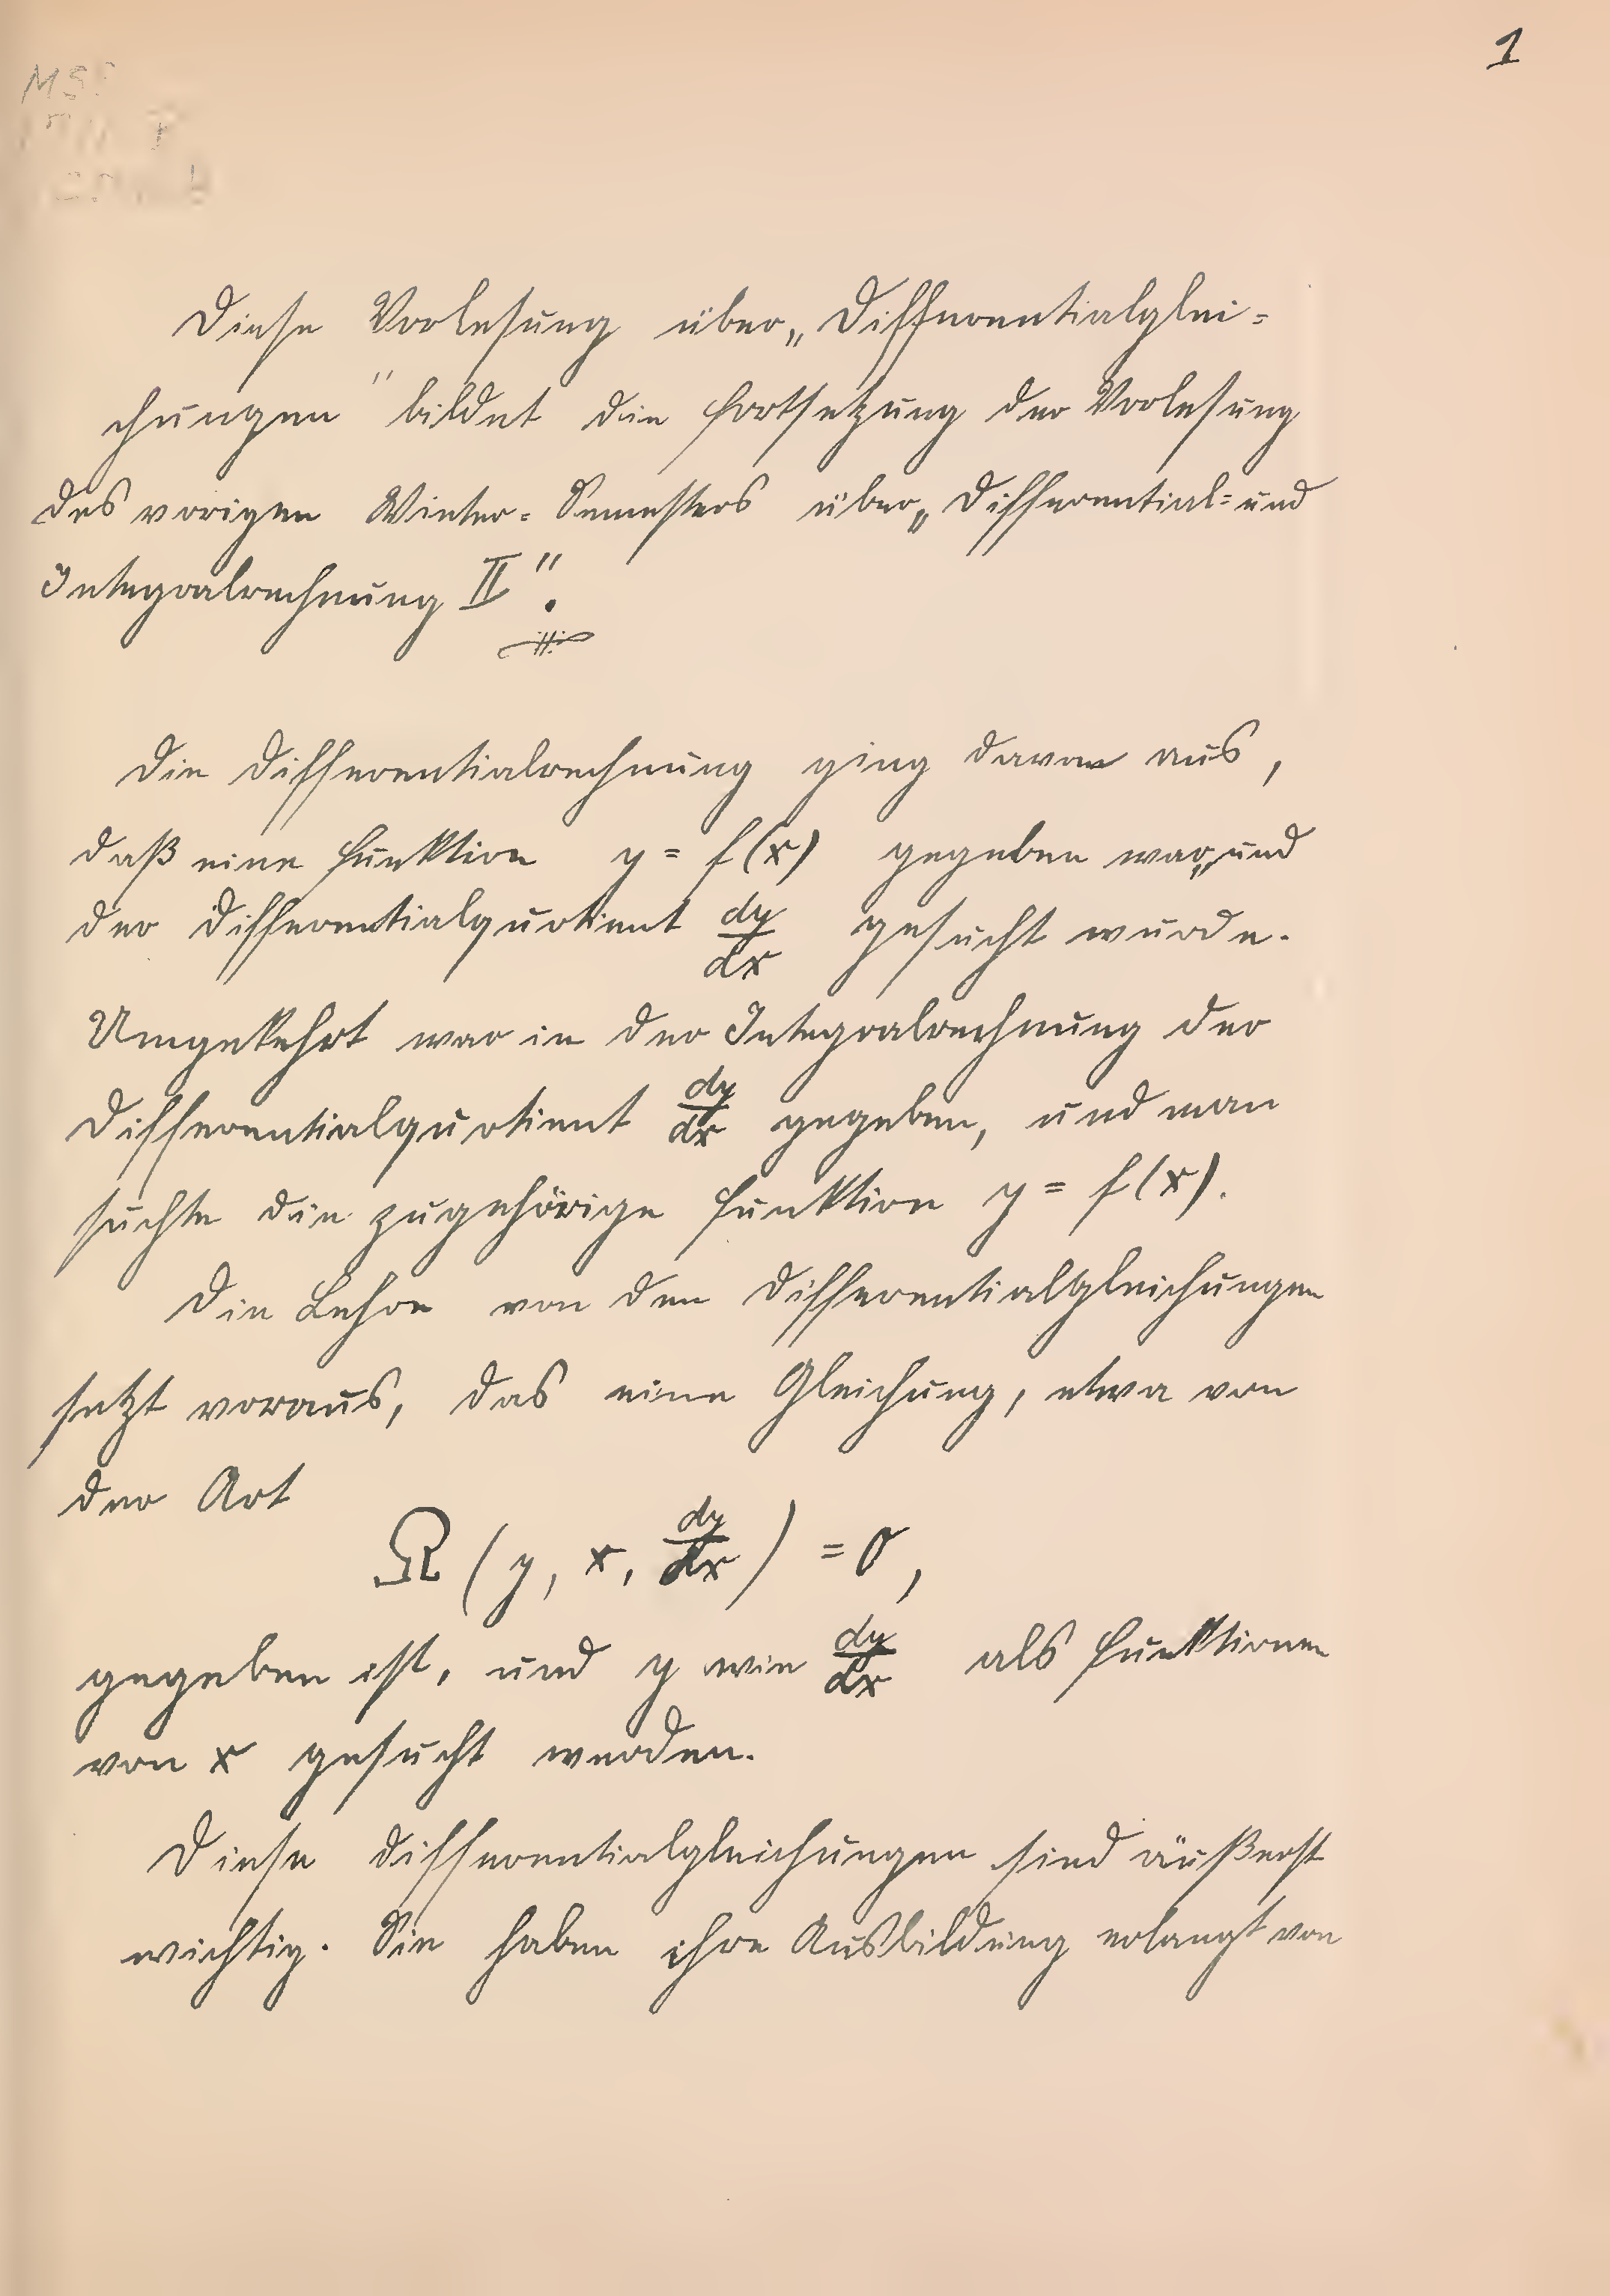 1
Diese Vorlesung über „Differentialglei=
chungen" bildet die Fortsetzung der Vorlesung
des vorigen Winter=Semesters über „Differential= und
Integralrechnung II".
Die Differentialrechnung ging davon aus,
daß eine Funktion y = f(x) gegeben war, und
der Differentialquotient dy/dx gesucht wurde.
Umgekehrt war in der Integralrechnung der
Differentialquotient dy/dx gegeben, und man
suchte die zugehörige Funktion y = f(x).
Die Lehre von den Differentialgleichungen
setzt voraus, das eine Gleichung, etwa von
der Art
Ω (y, x, dy/dx) = 0,
gegeben ist, und y wie dy/dx als Funktionen
von x gesucht werden.
Diese Differentialgleichungen sind äußerst
wichtig. Sie haben ihre Ausbildung erlangt von